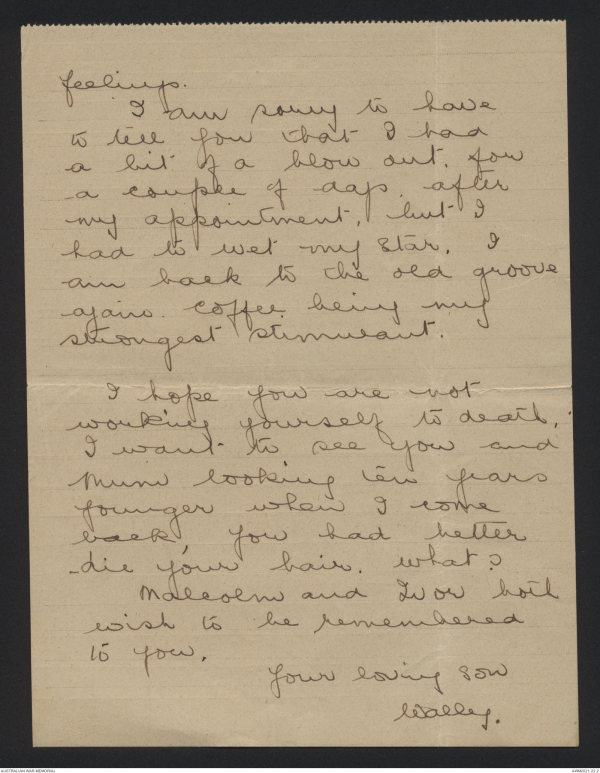 feelings.
I am sorry to have
to tell you that I had
a bit of a blow out. for
a couple of days. after
my appointment, but I
had to wet my star. I
am back to the old groove
again. coffee. being my
strongest stimulant.
I hope you are not
working yourself to death.
I want to see you and
Mum looking ten years
younger when I come
back, you had better
die your hair. what?
Malcolm and Ivor both
wish to be remembered
to you.
Your loving son
Walley.
AUSTRALIAN WAR MEMORIAL